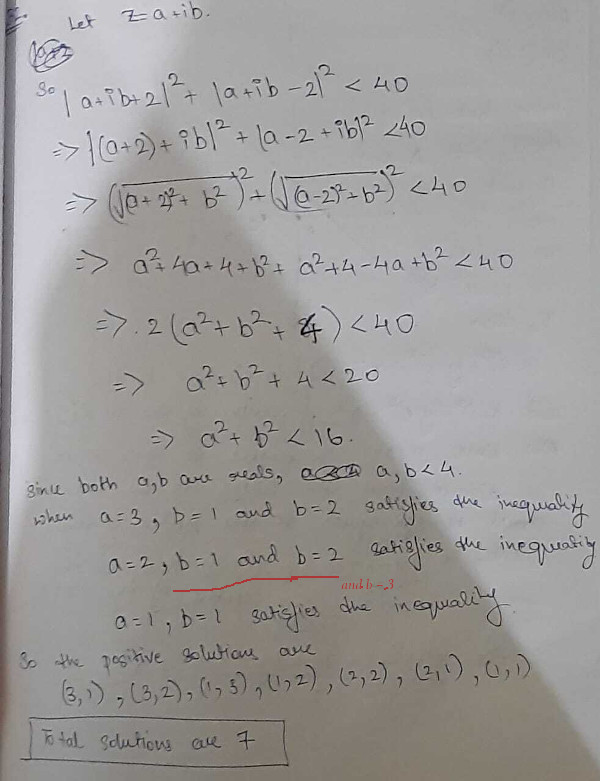 Let z=a+ib.
So |a+ib+2|²+ |a+ib-2|² < 40
=> |(a+2)+ib|² + |a-2+ib|² <40
=> (√(a+2)²+b²)² + (√(a-2)²+b²)² < 40
=> a²+4a+4+b²+ a²+4-4a+b² <40
=> 2(a²+b²+4) <40
=> a²+b²+4 <20
=> a²+b² <16.
since both a,b are reals, a,b<4.
when a=3, b=1 and b=2 satisfies the inequality
a=2, b=1 and b=2 satisfies the inequality
and b=3
a=1, b=1 satisfies the inequality.
So the positive solutions are
(3,1), (3,2), (1,3), (1,2), (2,2), (2,1), (1,1)
Total solutions are 7